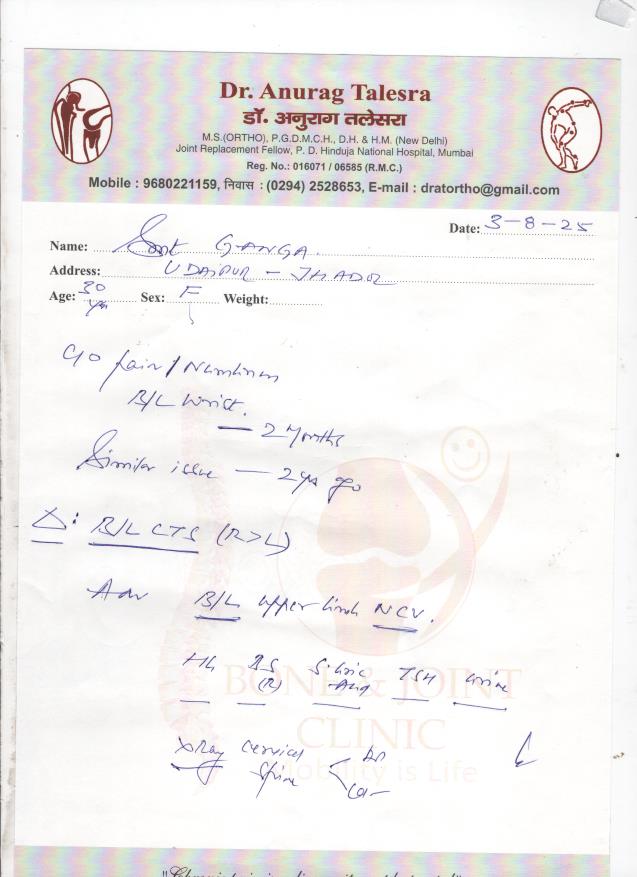 Dr. Anurag Talesra
डॉ. अनुराग तलेसरा
M.S.(ORTHO), P.G.D.M.C.H., D.H. & H.M. (New Delhi)
Joint Replacement Fellow, P. D. Hinduja National Hospital, Mumbai
Reg. No.: 016071 / 06585 (R.M.C.)
Mobile : 9680221159, निवास : (0294) 2528653, E-mail : dratortho@gmail.com
Date: 3-8-25
Name: Smt GANGA.
Address: UDAIPUR - JHADOL
Age: 30 yrs Sex: F Weight:
C/O Pain / Numbness
B/L Wrist.
— 2 Months
Similar issue — 2 yrs ago
Δ: B/L CTS (R>L)
Adv B/L upper limb NCV.
Hb BS (R) S. Uric Acid TSH Urine
BONE & JOINT
CLINIC
Mobility is Life
Xray Cervical Spine < AP
Lat